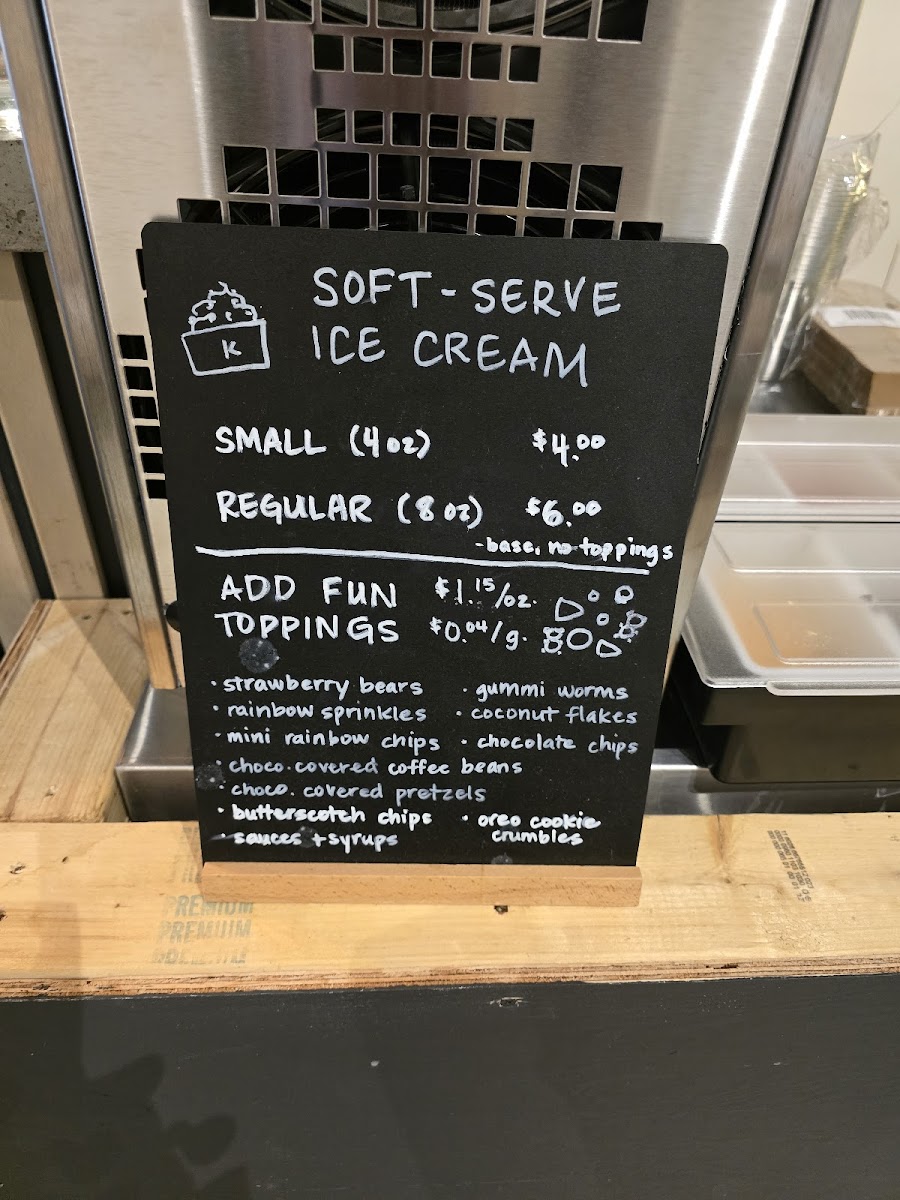 K
SOFT-SERVE
ICE CREAM
SMALL (4oz) $4.00
REGULAR (8oz) $6.00
-base, no toppings
ADD FUN $1.15/oz.
TOPPINGS $0.04/g.
• strawberry bears • gummi worms
• rainbow sprinkles • coconut flakes
• mini rainbow chips • chocolate chips
• choco. covered coffee beans
• choco. covered pretzels
• butterscotch chips • oreo cookie
crumbles
- sauces + syrups
PREMIUM
PREMIUM